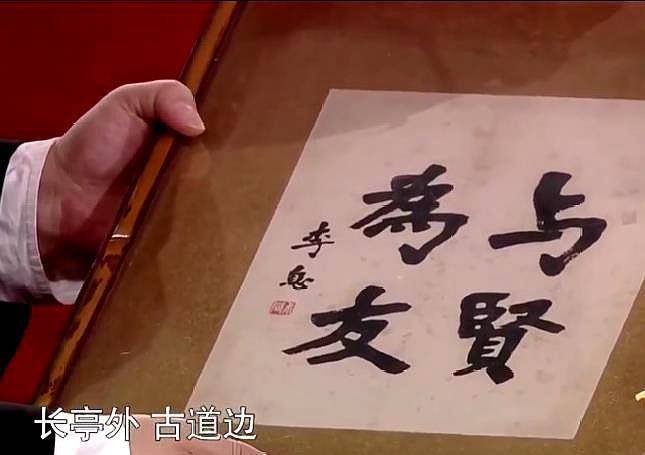 与賢
為友
李息
长亭外 古道边